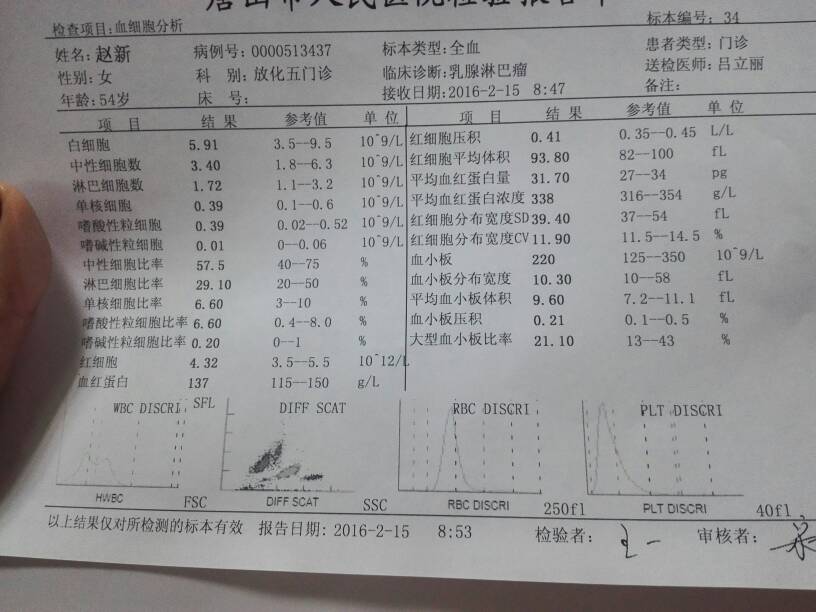 唐山市人民医院检验报告单
检查项目:血细胞分析 标本编号: 34
姓名:赵新 病例号:0000513437 标本类型:全血 患者类型:门诊
性别:女 科 别:放化五门诊 临床诊断:乳腺淋巴瘤 送检医师:吕立丽
年龄:54岁 床 号: 接收日期:2016-2-15 8:47 备注:
项 目 结 果 参考值 单 位 项 目 结 果 参考值 单 位
白细胞 5.91 3.5--9.5 10^9/L 红细胞压积 0.41 0.35--0.45 L/L
中性细胞数 3.40 1.8--6.3 10^9/L 红细胞平均体积 93.80 82--100 fL
淋巴细胞数 1.72 1.1--3.2 10^9/L 平均血红蛋白量 31.70 27--34 pg
单核细胞 0.39 0.1--0.6 10^9/L 平均血红蛋白浓度 338 316--354 g/L
嗜酸性粒细胞 0.39 0.02--0.52 10^9/L 红细胞分布宽度SD 39.40 37--54 fL
嗜碱性粒细胞 0.01 0--0.06 10^9/L 红细胞分布宽度CV 11.90 11.5--14.5 %
中性细胞比率 57.5 40--75 % 血小板 220 125--350 10^9/L
淋巴细胞比率 29.10 20--50 % 血小板分布宽度 10.30 10--58 fL
单核细胞比率 6.60 3--10 % 平均血小板体积 9.60 7.2--11.1 fL
嗜酸性粒细胞比率 6.60 0.4--8.0 % 血小板压积 0.21 0.1--0.5 %
嗜碱性粒细胞比率 0.20 0--1 % 大型血小板比率 21.10 13--43 %
红细胞 4.32 3.5--5.5 10^12/L
血红蛋白 137 115--150 g/L
WBC DISCRI SFL DIFF SCAT RBC DISCRI PLT DISCRI
HWBC FSC DIFF SCAT SSC RBC DISCRI 250fl PLT DISCRI 40fl
以上结果仅对所检测的标本有效 报告日期: 2016-2-15 8:53 检验者: 审核者: